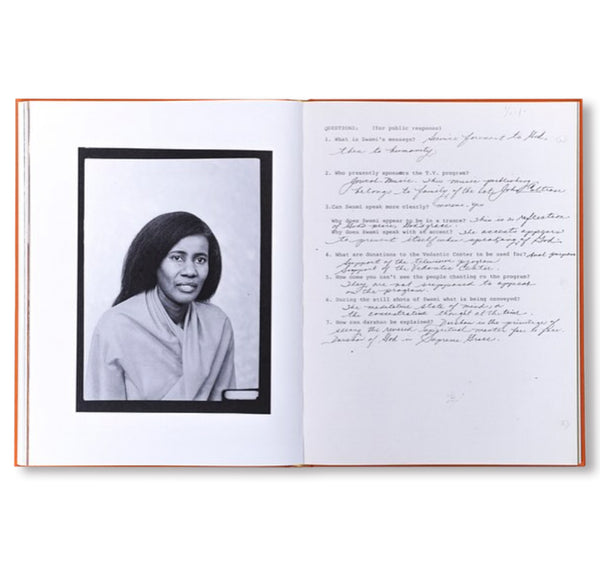 QUESTIONS: (for public response)
1. What is Swami's message? Service foremost to God,
then to humanity
2. Who presently sponsors the T.V. program?
Jowcol Music. This music publishing
belongs to family of the late John Coltrane
3.Can Swami speak more clearly? yes
Why does Swami appear to be in a trance? This is a reflection
of God's peace, God's grace.
Why does Swami speak with an accent? The accents appears
to present itself when speaking of God.
4. What are donations to the Vedantic Center to be used for? dual purpose
Support of the television program
Support of the Vedantic Center.
5. How come you don't see the people chanting on the program?
They are not supposed to appear
on the program.
6. During the still shots of Swami what is being conveyed?
The meditative state of mind, or
the concentrative thought at the time.
7. How can darshan be explained? Darshan is the privilege of
seeing the revered spiritual master face to face.
Darshan of God is Supreme Grace.